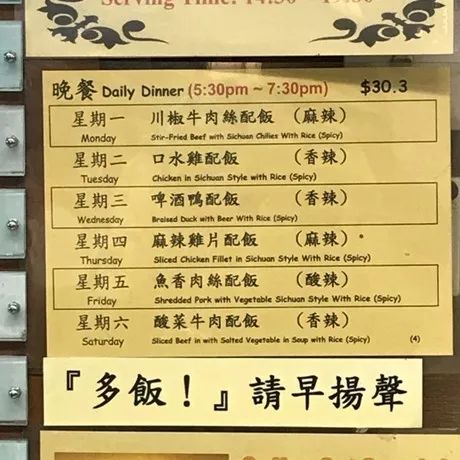 Serving Time: 14:30 - 19:30
晚餐 Daily Dinner (5:30pm ~ 7:30pm) $30.3
星期一 川椒牛肉絲配飯 （麻辣）
Monday Stir-Fried Beef with Sichuan Chilies With Rice (Spicy)
星期二 口水雞配飯 （香辣）
Tuesday Chicken in Sichuan Style with Rice (Spicy)
星期三 啤酒鴨配飯 （香辣）
Wednesday Braised Duck with Beer With Rice (Spicy)
星期四 麻辣雞片配飯 （麻辣）
Thursday Sliced Chicken Fillet in Sichuan Style with Rice (Spicy)
星期五 魚香肉絲配飯 （酸辣）
Friday Shredded Pork with Vegetable Sichuan Style With Rice (Spicy)
星期六 酸菜牛肉配飯 （香辣）
Saturday Sliced Beef in with Salted Vegetable in Soup with Rice (Spicy) (4)
『多飯！』請早揚聲